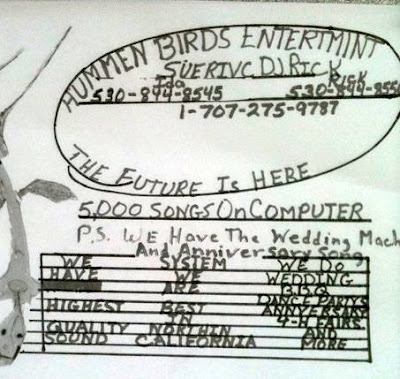 HUMMEN BIRDS ENTERTMINT
SUERIVC DJ RICK
Ida RICK
530-894-8545 530-894-855
1-707-275-9787
THE FUTURE IS HERE
5,000 SONGS ON COMPUTER
P.S. WE Have The Wedding Mach
And Anniversary Song
WE SYSTEM WE DO
HAVE WE WEDDING
ARE B.B.Q.
HIGHEST BEST DANCE PARTYS
IN ANNYVERSARY
QUALITY NORTHIN 4-H FAIRS
SOUND CALIFORNIA AND
MORE